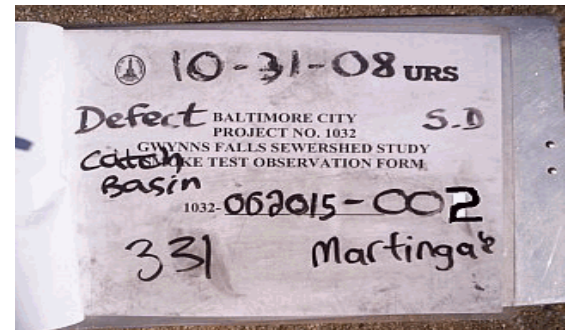 10-31-08 URS
Defect BALTIMORE CITY S.D
PROJECT NO. 1032
GWYNNS FALLS SEWERSHED STUDY
Catch SMOKE TEST OBSERVATION FORM
Basin
1032-062015-002
331 Martingale